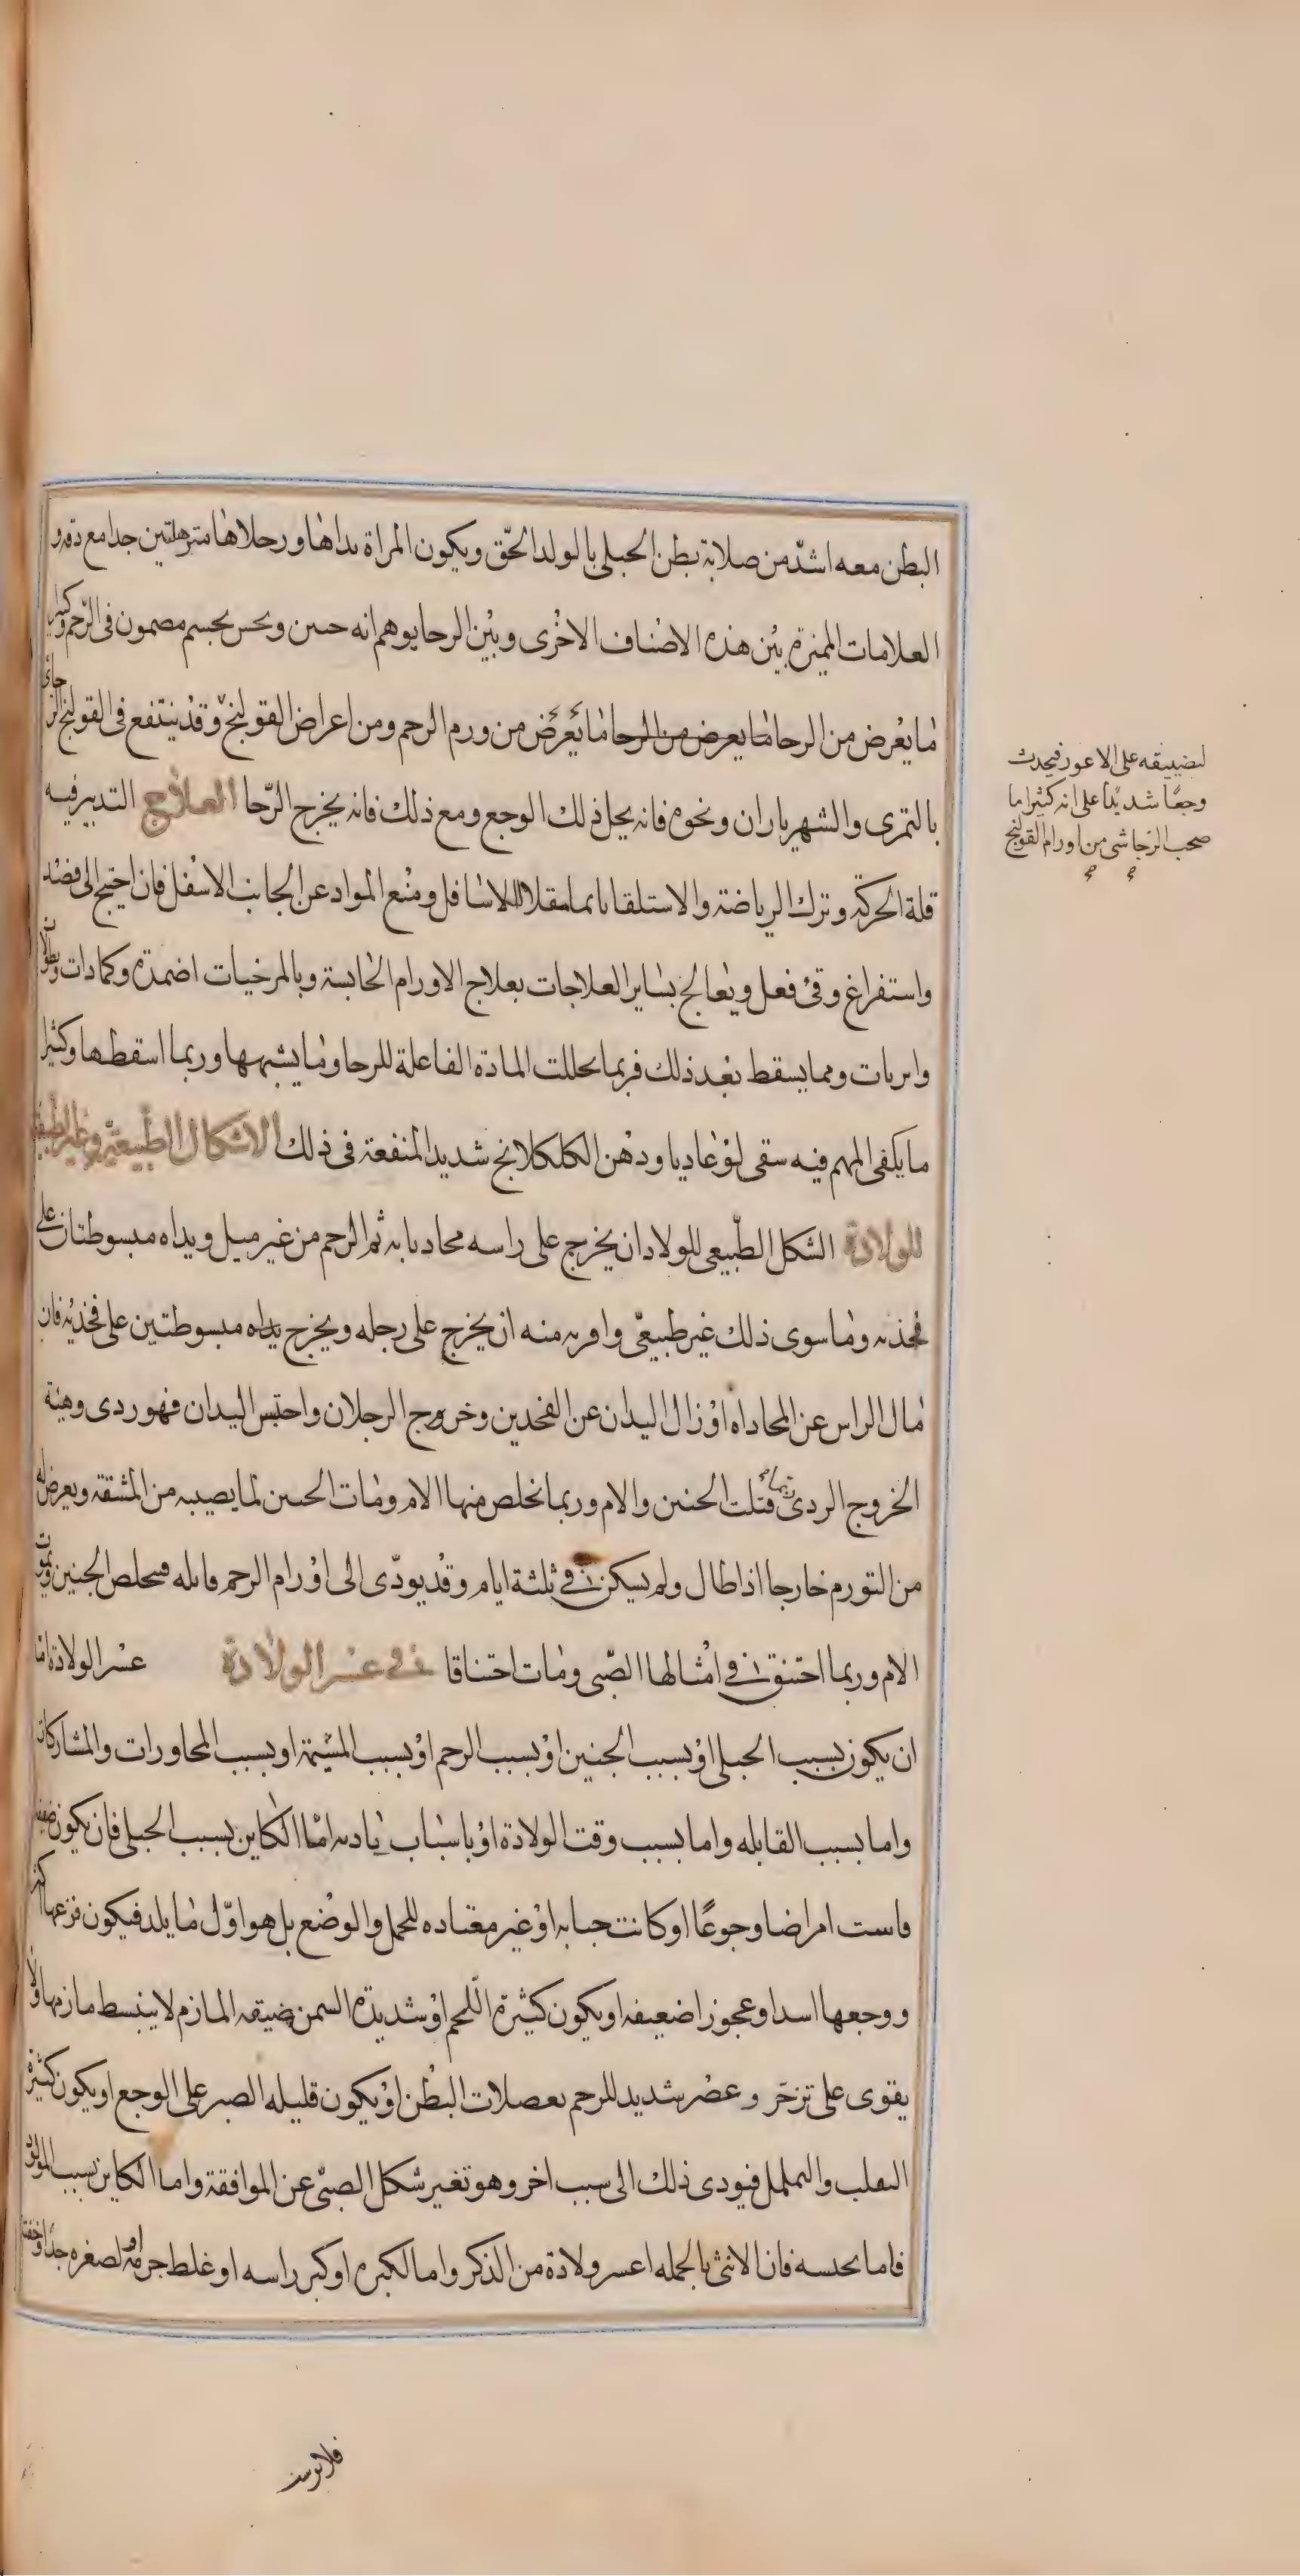 البطن معه اشدّ من صلابة بطن الحبلى بالولد الحّق ويكون المراة يداها ورجلاها مترهلتين جدا مع دقة و
العلامات المميزة بين هذه الاصناف الاخرى وبين الرحا يوهم انه جنين ويحس بجسم مصمون فى الرّحم وكثيرا
ما يعرض من الرحا ما يعرض من الرحا ما يعرض من ورم الرحم ومن اعراض القولنج وقد ينتفع فى القولنج الرحائى
بالتمرى والشهرياران ونحوه فانه يحل ذلك الوجع ومع ذلك فانه يخرج الرّحا العلاج التدبير فيه
قلة الحركة وترك الرياضة والاستلقا نائما مقلا الاسافل ومنع المواد عن الجانب الاسفل فان احتيج الى فصد
واستفراغ وقئ فعل ويعالج بساير العلاجات بعلاج الاورام الخاسبة وبالمرخيات اضمدة وكمادات ونطولات
وابزنات ومما يسقط بعد ذلك فربما تحللت المادة الفاعلة للرحا وما يشبهها وربما اسقطها وكثيرا
ما يكفى المهم فيه سقى لوغاديا ودهن الكلكلانج شديد المنفعة فى ذلك الاشكال الطبيعيّة وغير الطبيعيّة
للولادة الشكل الطّبيعى للولاد ان يخرج على راسه محاديا به ثم الرحم من غير ميل ويداه مبسوطتان على
فخذيه وما سوى ذلك غير طبيعىّ واقربه منه ان يخرج على رجله ويخرج يداه مبسوطتين على فخذيه فان
مال الراس عن المحاداه او زال اليدان عن الفخدين وخروج الرجلان واحتبس اليدان فهو ردى وهيئة
الخروج الردى ربما قتلت الجنين والام وربما تخلص منها الام ومات الجنين لما يصيبه من المشقة ويعرض له
من التورم خارجا اذا طال ولم يسكن فى ثلثة ايام وقد يودّى الى اورام الرحم قاتله فيخلص الجنين ويموت
الام وربما احتنق فى امثالها الصّبى ومات احتناقا فى عسر الولادة عسر الولادة اما
ان يكون بسبب الحبلى او بسبب الجنين او بسبب الرحم او بسبب المشيمة او بسبب المجاورات والمشاركات
واما بسبب القابله واما بسبب وقت الولادة او باسباب بادية امّا الكاين بسبب الحبلى فان يكون ضعيفة
قاست امراضا وجوعًا او كانت جبانه او غير معتاده للحمل والوضع بل هو اوّل ما يلد فيكون فزعها اكثر
ووجعها اشد او عجوزا ضعيفه او يكون كثيرة اللّحم او شديدة السمن ضيقه المازم لا ينبسط مازمها ولا
يقوى على تزحّر وعصر شديد للرحم بعصلات البطن او يكون قليله الصبر على الوجع او يكون كثيرة
التقلب والتململ فيودى ذلك الى سبب اخر وهو تغير شكل الصبّى عن الموافقة واما الكاين بسبب المولود
فاما بجنسه فان الانثى بالجمله اعسر ولادة من الذكر واما لكبره او كبر راسه او غلط جرمه او لصغره جدّا وخفته
لتضييقه على الاعور فيحدث
وجعًا شديدًا على انه كثيرا ما
صحب الرحا شى من اورام القولنج
فلا يرسب